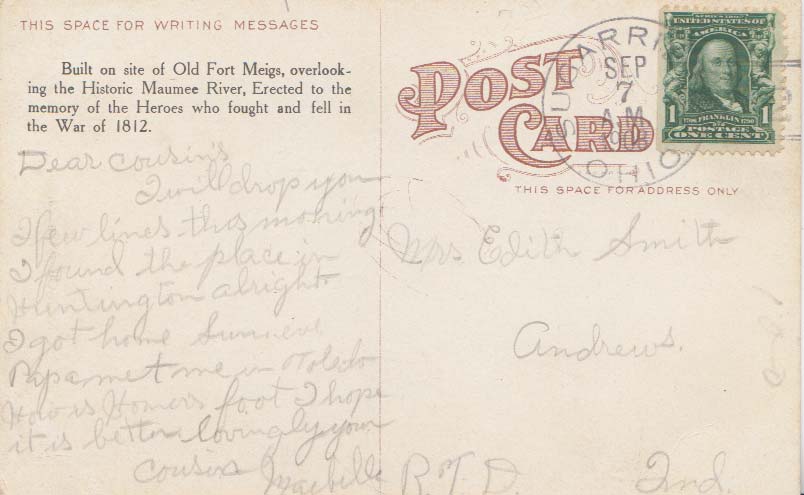 THIS SPACE FOR WRITING MESSAGES
Built on site of Old Fort Meigs, overlook-
ing the Historic Maumee River, Erected to the
memory of the Heroes who fought and fell in
the War of 1812.
Dear Cousins
I will drop you
I few lines this morning
I found the place in
Huntington alright
I got home
Papa met me in Toledo
How is Homers foot I hope
it is better lovingly your
cousin
POST
CARD
THIS SPACE FOR ADDRESS ONLY
SEP
7
A M
OHIO
SERIES 1902
UNITED STATES OF
AMERICA
1 1
1706 FRANKLIN 1790
POSTAGE
ONE CENT
Mrs Edith Smith
Andrews.
R. F. D. Ind.